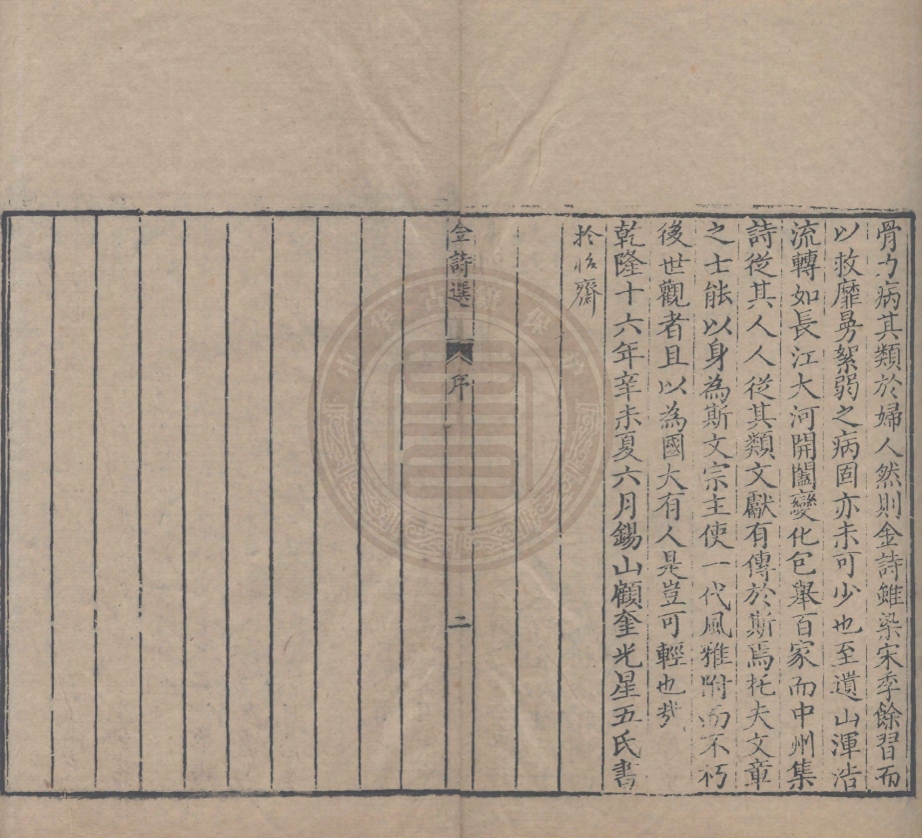 骨力病其類於婦人然則金詩雖染宋季餘習而
以救靡曼絮弱之病固亦未可少也至遺山渾浩
流轉如長江大河開闔變化包舉百家而中州集
詩從其人人從其類文獻有傳於斯焉托夫文章
之士能以身為斯文宗主使一代風雅附而不朽
後世觀者且以為國大有人是豈可輕也哉
乾隆十六年辛未夏六月錫山顧奎光星五氏書
於恡齋
金詩選
序
二